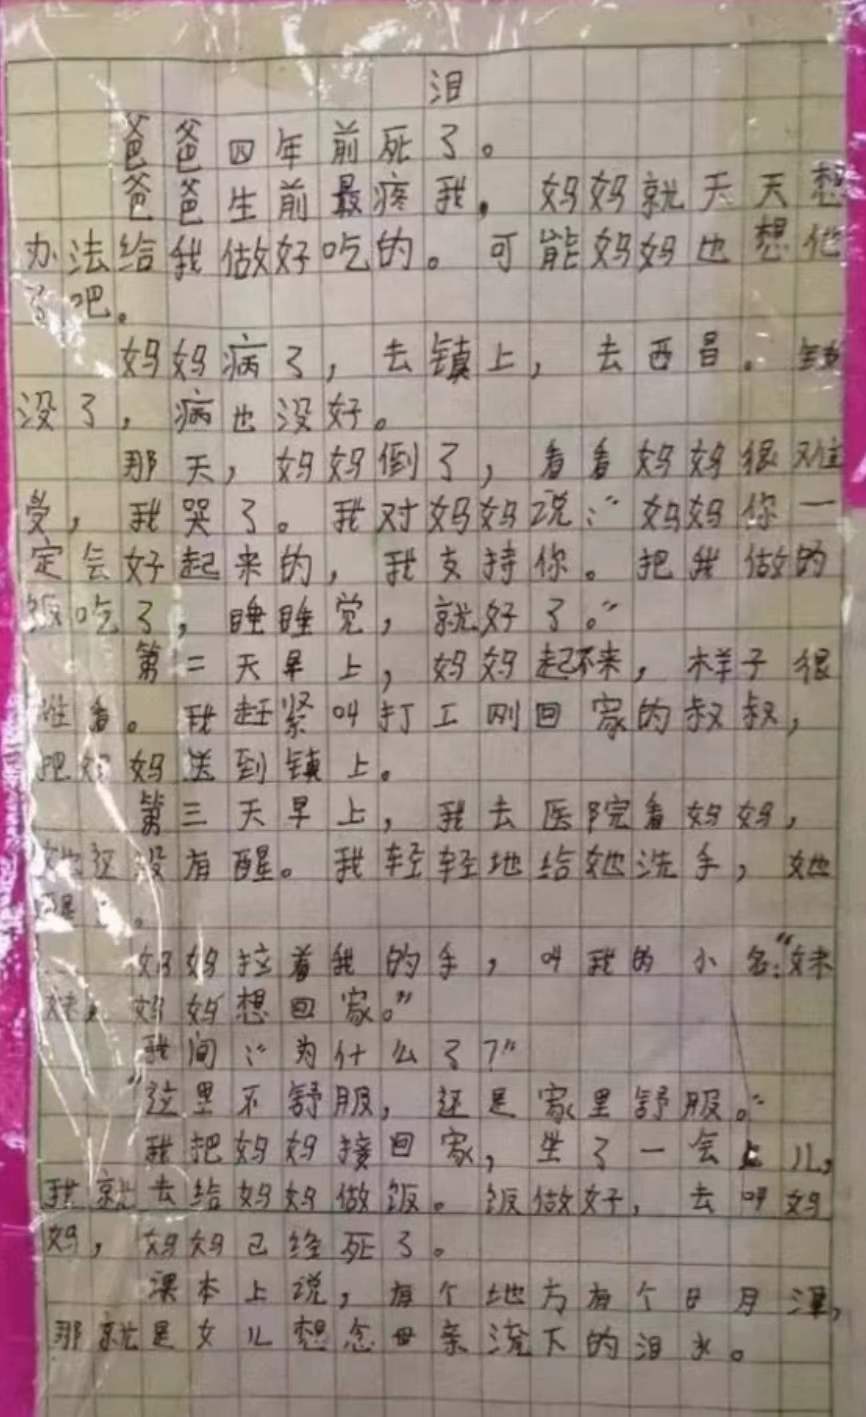 泪
爸爸四年前死了。
爸爸生前最疼我，妈妈就天天想
办法给我做好吃的。可能妈妈也想他
了吧。
妈妈病了，去镇上，去西昌。钱
没了，病也没好。
那天，妈妈倒了，看看妈妈很难
受，我哭了。我对妈妈说：“妈妈你一
定会好起来的，我支持你。把我做的
饭吃了，睡睡觉，就好了。”
第二天早上，妈妈起不来，样子很
难看。我赶紧叫打工刚回家的叔叔，
把妈妈送到镇上。
第三天早上，我去医院看妈妈，
她还没有醒。我轻轻地给她洗手，她
醒了。
妈妈拉着我的手，叫我的小名：“妹
妹，妈妈想回家。”
我问：“为什么了？”
“这里不舒服，还是家里舒服。”
我把妈妈接回家，坐了一会儿，
我就去给妈妈做饭。饭做好，去叫妈
妈，妈妈已经死了。
课本上说，有个地方有个日月潭，
那就是女儿想念母亲流下的泪水。